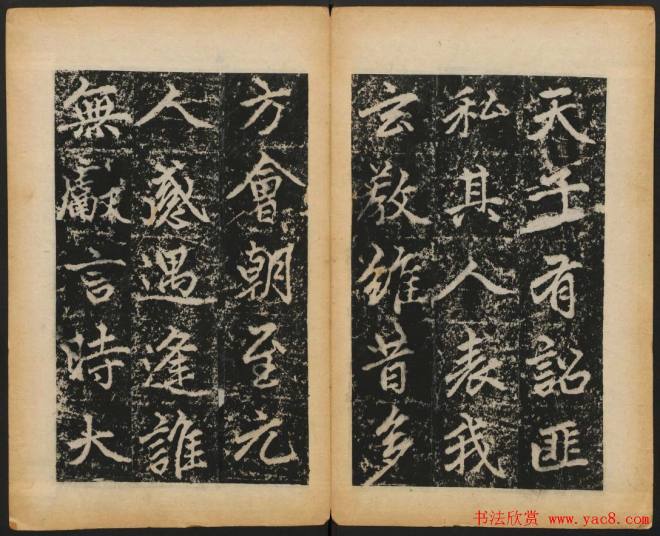 天子有詔匪
私其人表我
玄教雖昔多
方會朝至元
人感遇逢誰
無獻言時大
书法欣赏 www.yac8.com